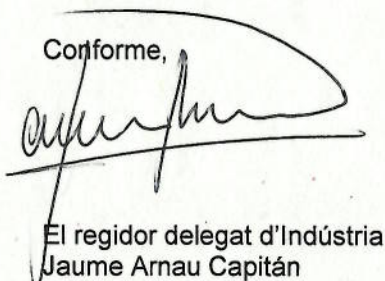 Conforme,
El regidor delegat d'Indústria
Jaume Arnau Capitán